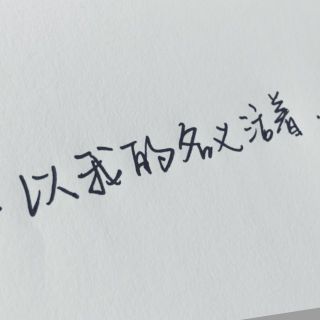 以我的名义活着.